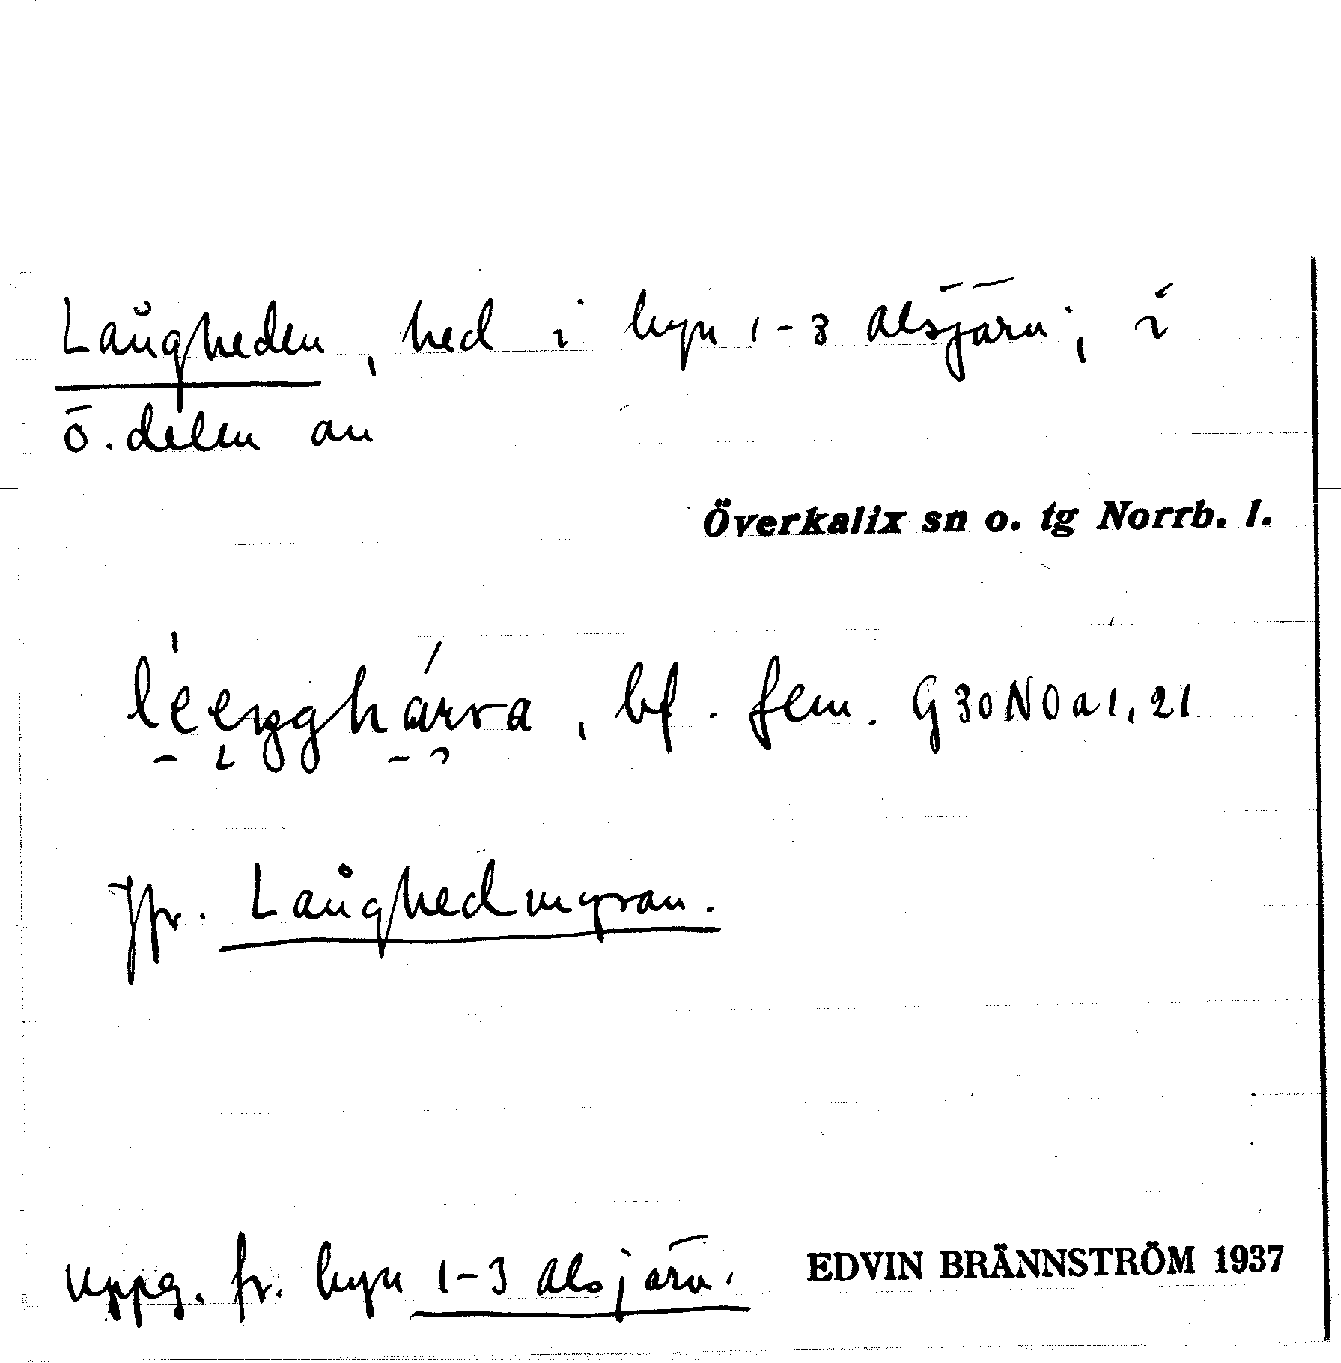 Långheden, hed i byn 1-3 Alsjärv; i
ö. delen av
Överkalix sn o. tg Norrb. l.
bf. fem. G30N0a1,21
Jfr. Långhedmyran.
Uppg. fr. byn 1-3 Alsjärv.
EDVIN BRÄNNSTRÖM 1937